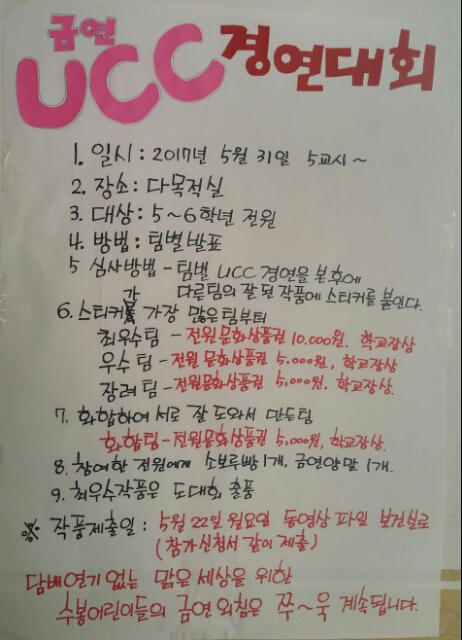 금연
UCC 경연대회
1. 일시 : 2017년 5월 31일 5교시 ~
2. 장소 : 다목적실
3. 대상 : 5~6학년 전원
4. 방법 : 팀별발표
5 심사방법 - 팀별 UCC 경연을 본후에
다른팀의 잘 된 작품에 스티커를 붙인다.
6. 스티커가 가장 많은팀부터
최우수팀 - 전원문화상품권 10,000원. 학교장상
우수 팀 - 전원 문화상품권 5,000원, 학교장상
장려 팀 - 전원문화상품권 5,000원, 학교장상.
7. 화합하여 서로 잘 도와서 만든팀
화합팀 - 전원문화상품권 5,000원, 학교장상.
8. 참여한 전원에게 소보루빵1개, 금연양말 1개.
9. 최우수작품은 도대회 출품
※ 작품제출일 : 5월 22일 월요일 동영상 파일 보건실로
(참가신청서 같이 제출)
담배연기 없는 맑은 세상을 위한
수봉어린이들의 금연 외침은 쭈~욱 계속됩니다.